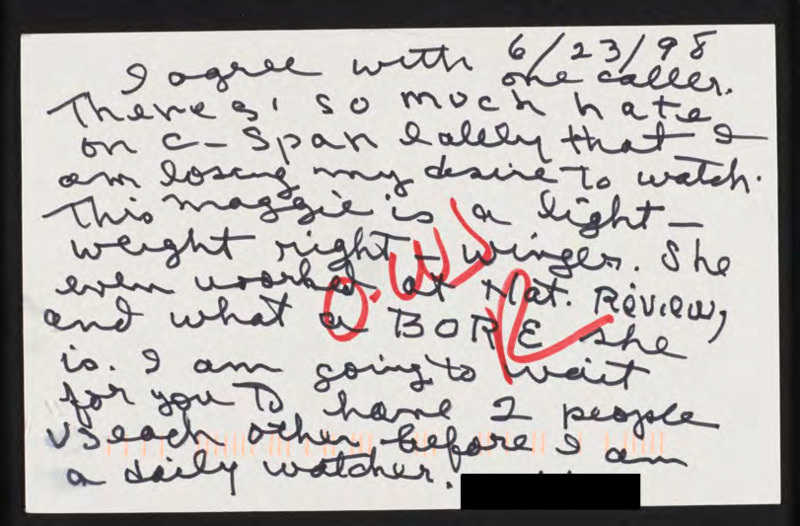 6/23/98
I agree with one caller.
There's' so much hate
on C-Span lately that I
am losing my desire to watch.
This maggie is a light-
weight right-winger. She
even worked at Nat. REVIEW,
and what a BORE she
is. I am going to wait
for you to have 2 people
vs each other, before I am
a daily watcher.